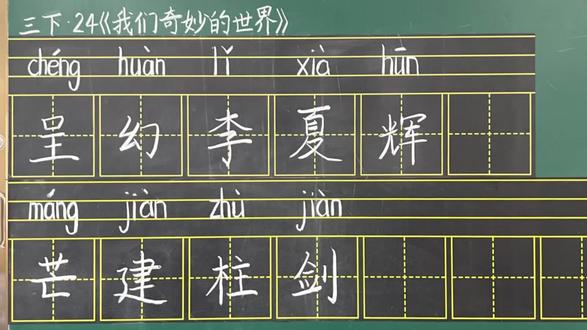 三下·24《我们奇妙的世界》
chéng huàn lǐ xià hūn
呈 幻 李 夏 辉
máng jiàn zhù jiàn
芒 建 柱 剑